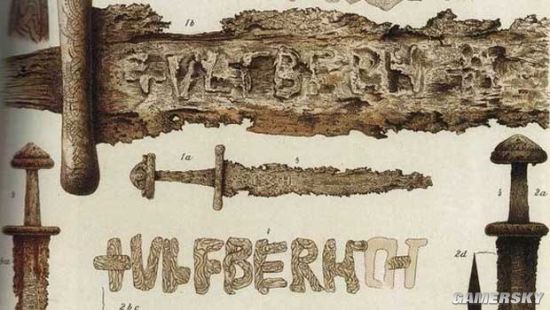 1b
+VLFBERH
1a
2a
+VLFBERH
2d
2bc
GAMERSKY